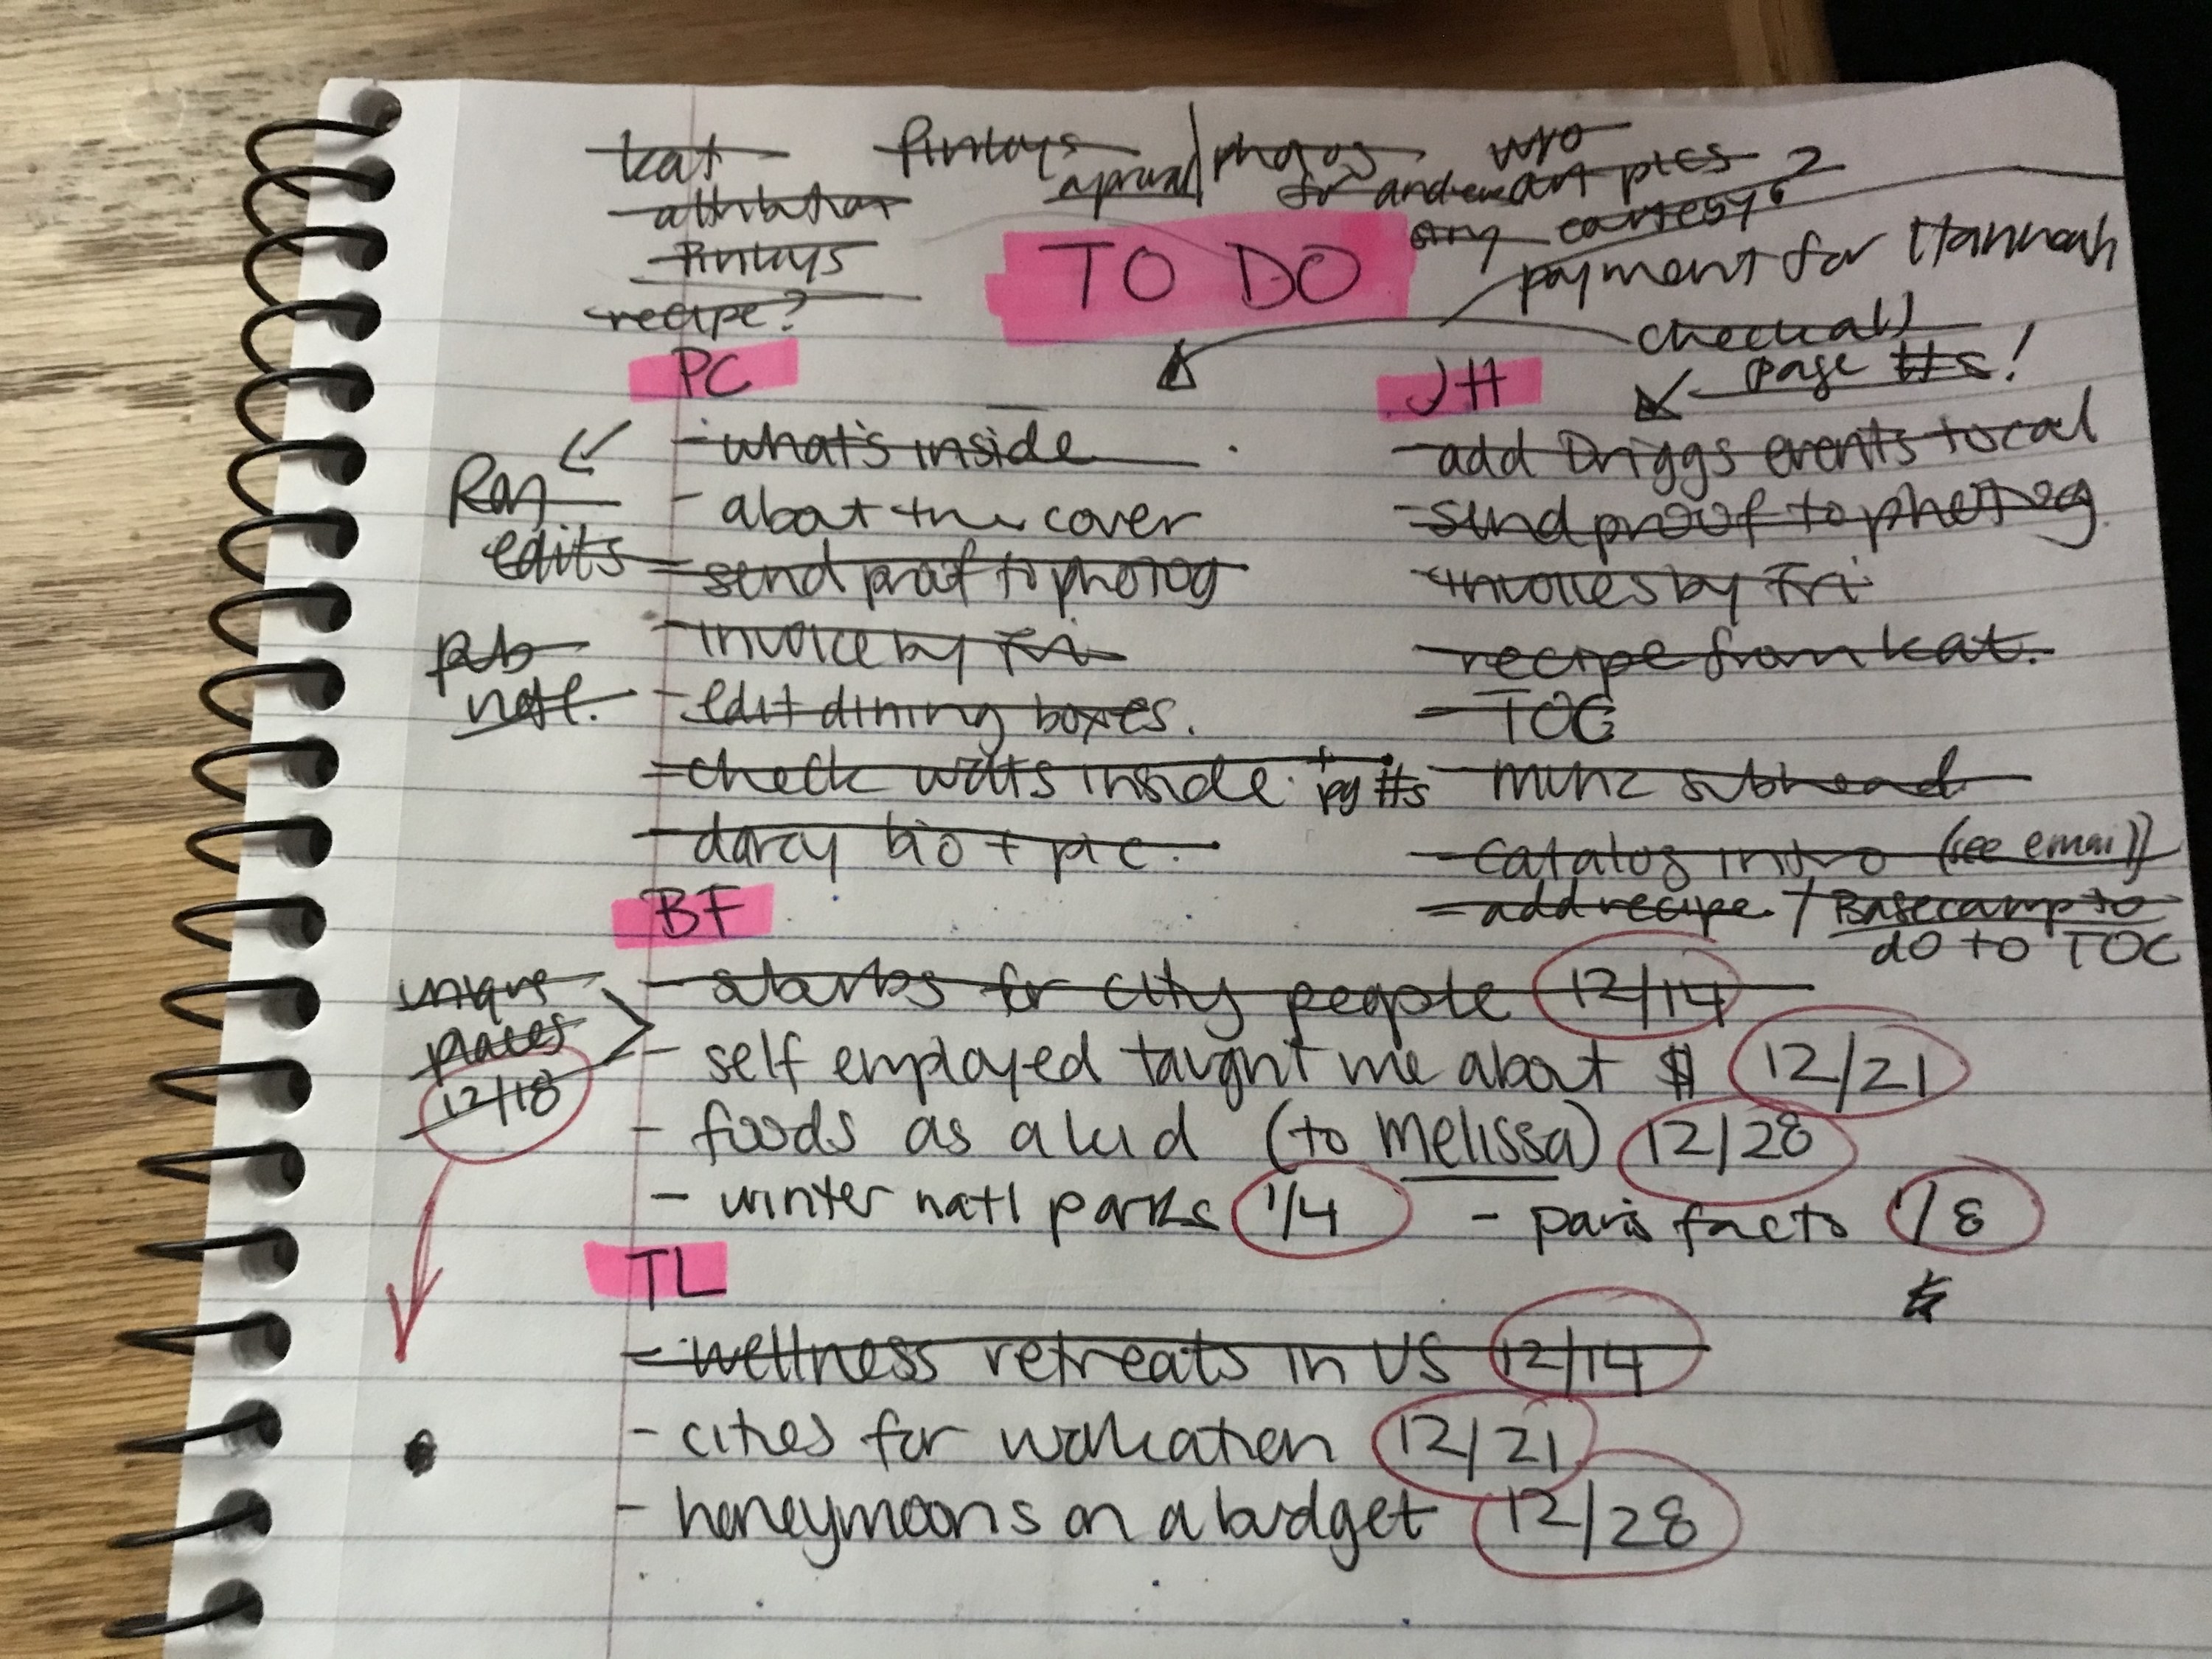 kat finlays approval / photos w/o
attribution for andrew art pics
finlays any courtesy?
recipe?
TO DO
payment for Hannah
check all
page #s!
PC
- what's inside
Ray
edits
- about the cover
- send proof to photog
- invoice by Fri
pub
note.
- edit dining boxes.
- check wats inside + pg #s
- darcy bio + pic.
JH
- add Driggs events to cal
- send proof to photog
- invoices by Fri
- recipe from kat.
- TOC
- subhead
- catalog intro (see email)
- add recipe / Basecamp to
do to TOC
BF
unique
places
12/18
- for city people 12/14
- self employed taught me about $ 12/21
- foods as a kid (to Melissa) 12/28
- winter nat'l parks 1/4 - paris facts 1/8
TL
- wellness retreats in US 12/14
- cities for workcation 12/21
- honeymoons on a budget 12/28